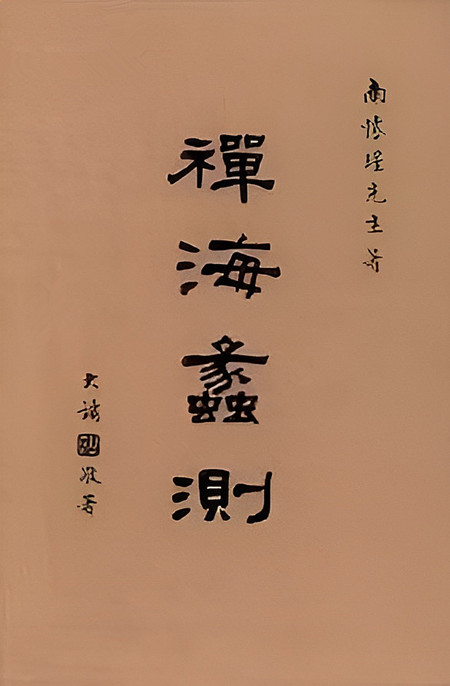 南懷瑾先生著
禪海蠡測
大
署